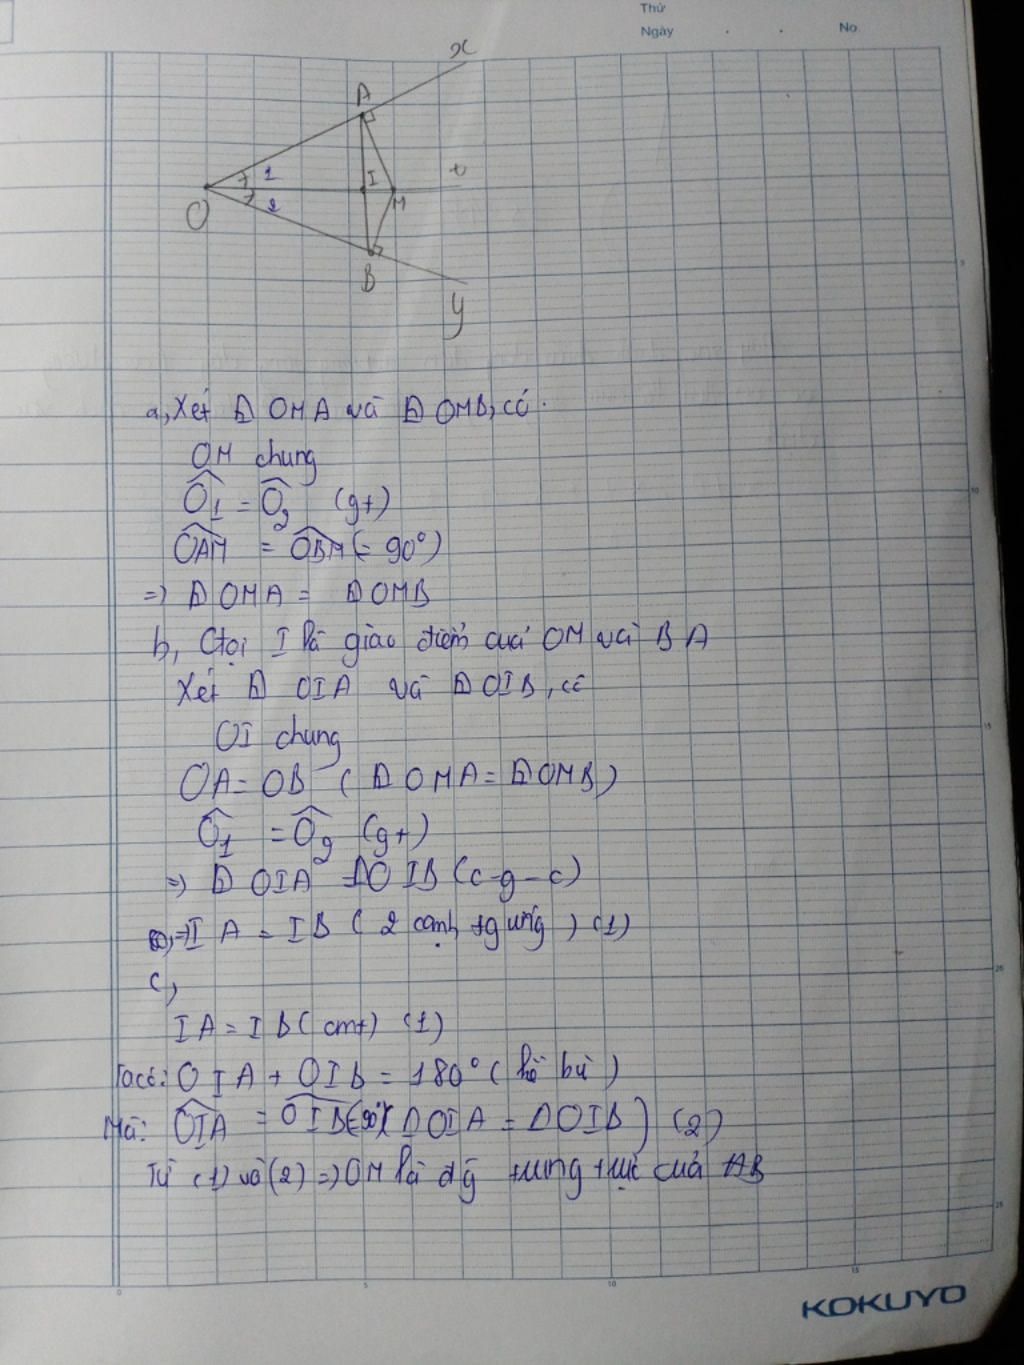 Thứ
Ngày . . No.
x
A
1
I
t
O
2
M
B
y
a, Xét Δ OMA và Δ OMB, có.
OM chung
Ô1 = Ô2 (gt)
OAM = OBM (= 90°)
=> Δ OMA = Δ OMB
b, Gọi I là giao điểm của OM và BA
Xét Δ OIA và Δ OIB, có
OI chung
OA = OB (Δ OMA = Δ OMB)
Ô1 = Ô2 (gt)
=> Δ OIA = Δ OIB (c-g-c)
=> IA = IB (2 cạnh tg ứng) (1)
c,
IA = IB (cmt) (1)
Ta có: OIA + OIB = 180° (kề bù)
Mà: OIA = OIB (= 90°) (Δ OIA = Δ OIB) (2)
Từ (1) và (2) => OM là đg trung trực của AB
5
10
15
20
25
0
5
10
15
KOKUYO